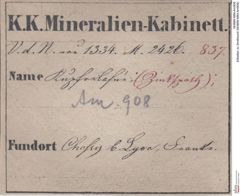 K.K. Mineralien-Kabinett.
V. d. N. 1334. M. 2426. 837
Name Kupferlasur (Zinkspath);
Am. 908
Fundort Chessy b. Lyon,